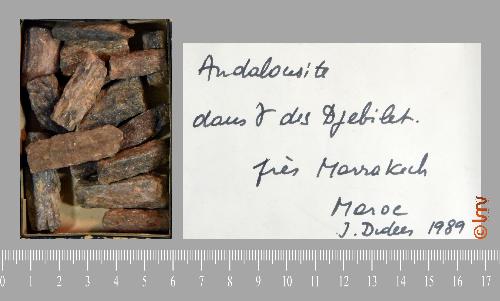 Andalousite
dans γ des Djebilet.
près Marrakech
Maroc
J. Didier 1989
© lmv
0 1 2 3 4 5 6 7 8 9 10 11 12 13 14 15 16 17